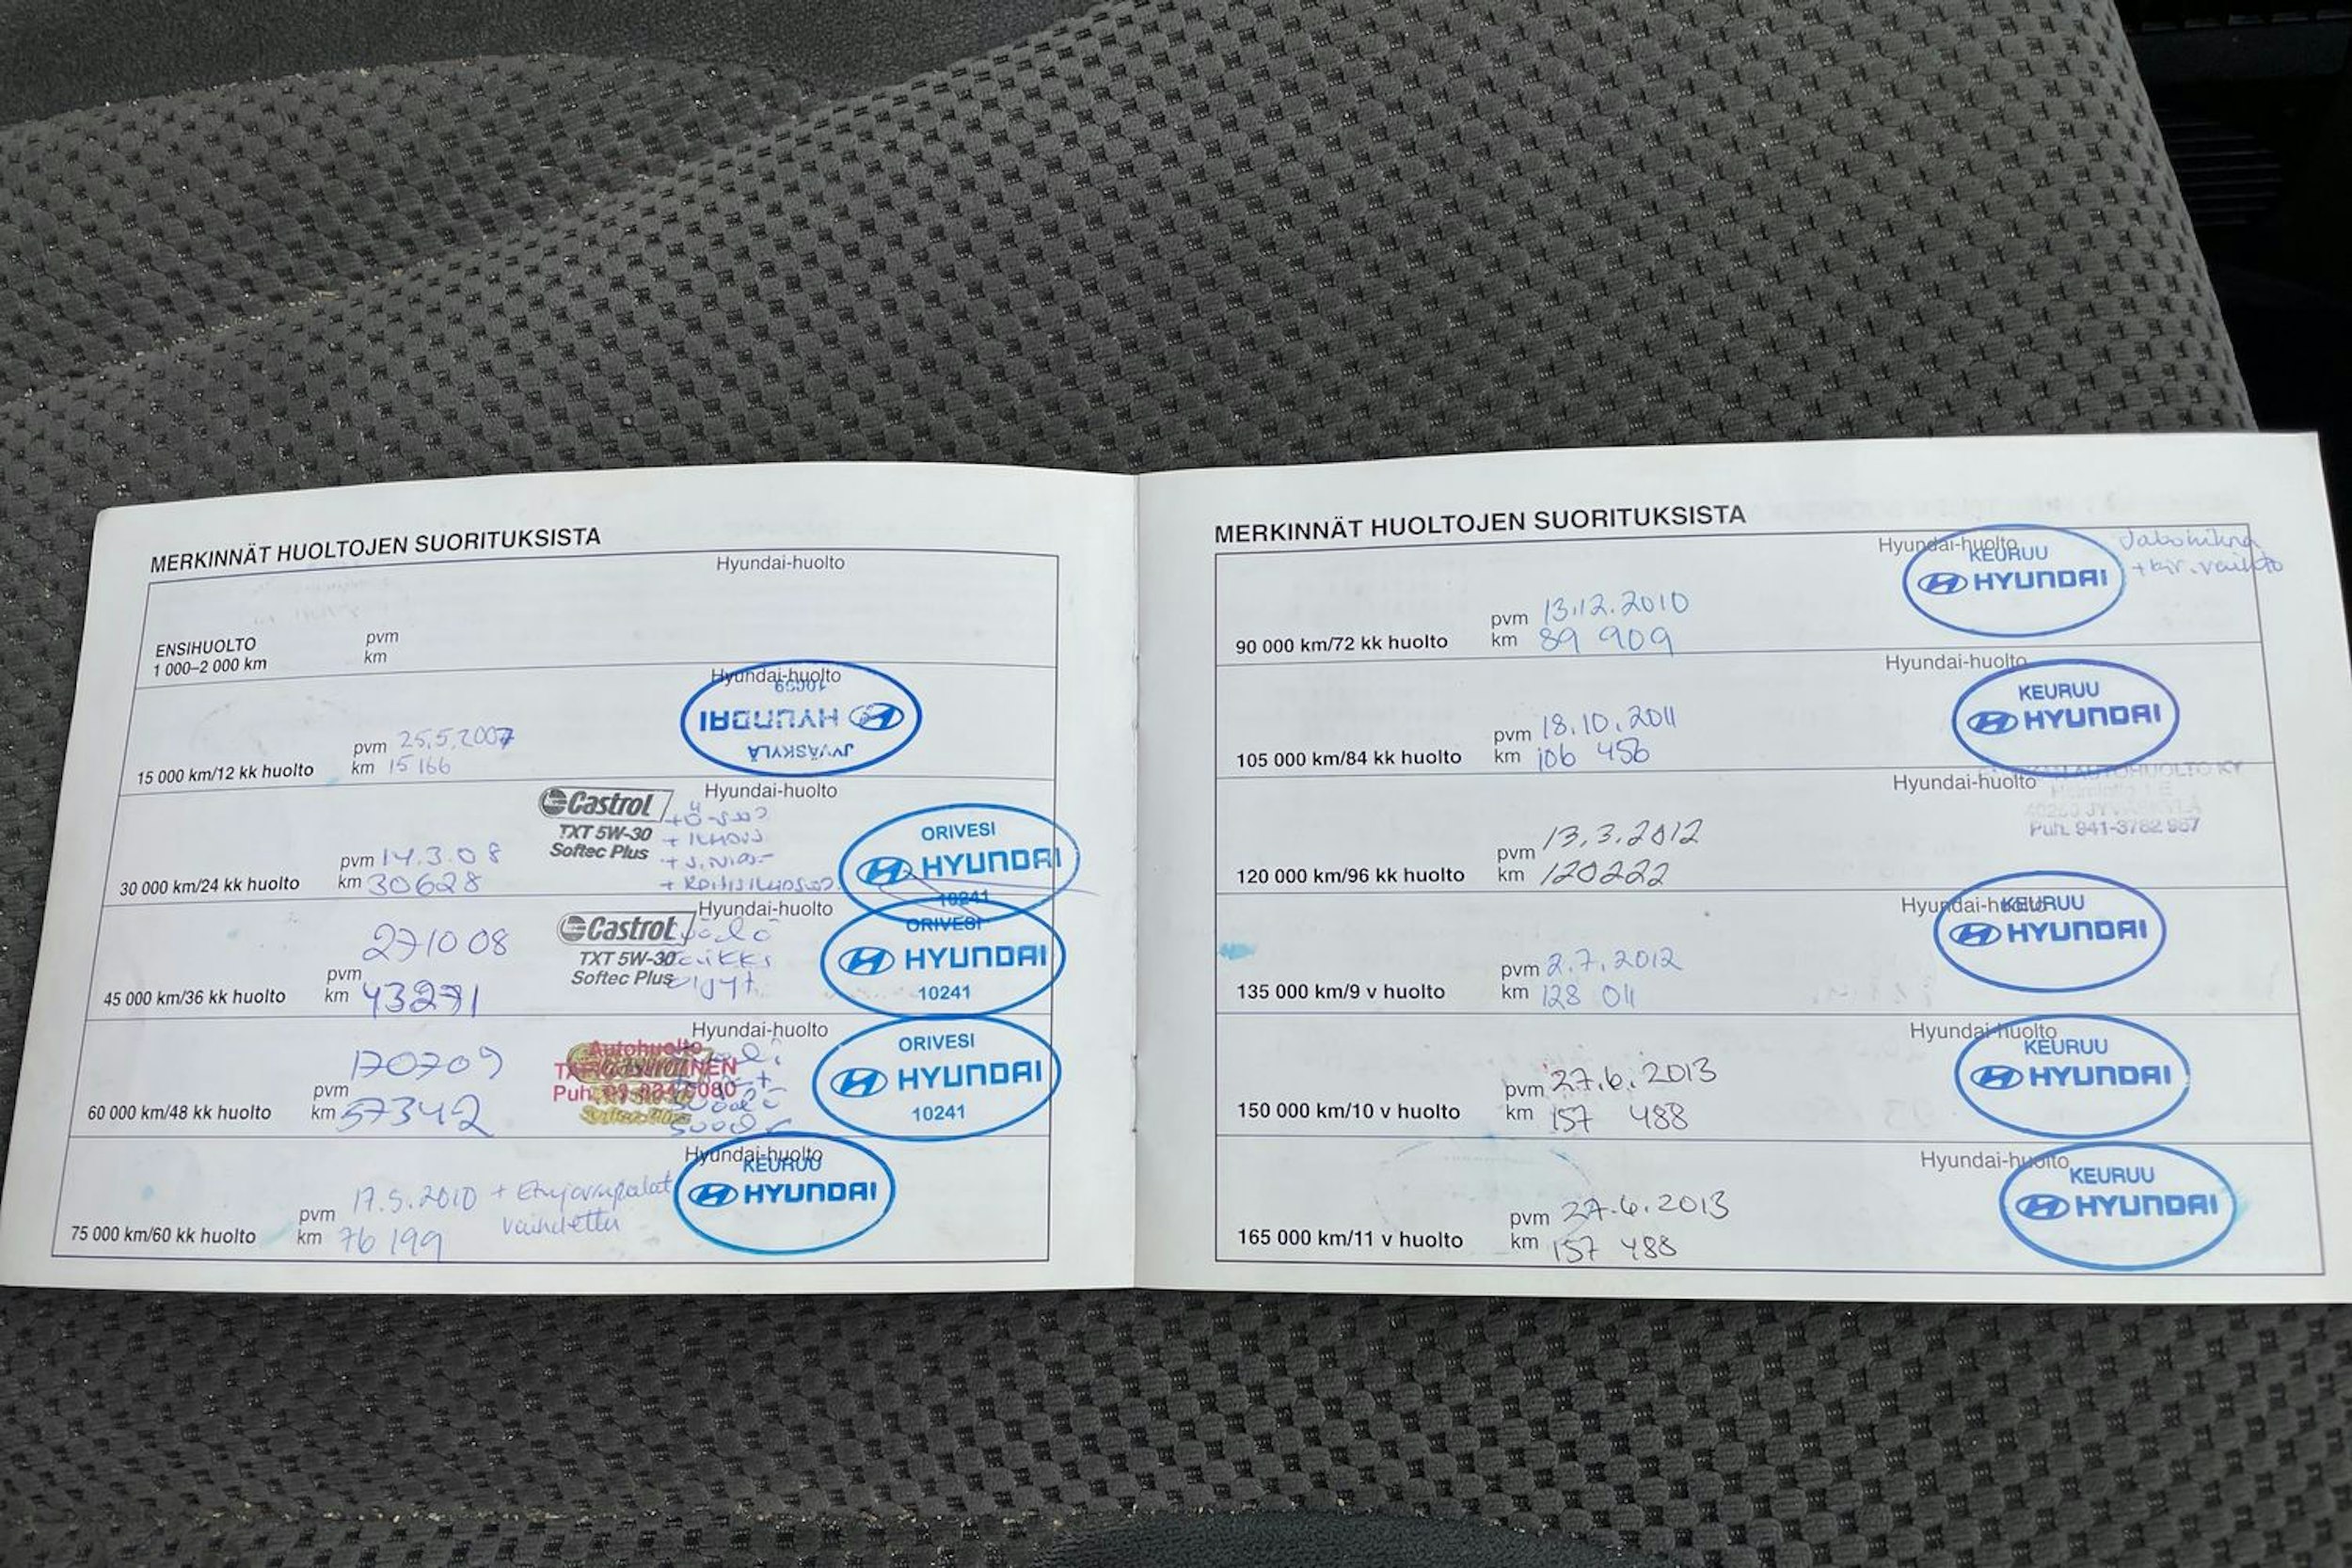 MERKINNÄT HUOLTOJEN SUORITUKSISTA
Hyundai-huolto
ENSIHUOLTO pvm
1 000–2 000 km km
Hyundai-huolto
10099
HYUNDAI
JYVÄSKYLÄ
pvm 25.5.2007
15 000 km/12 kk huolto km 15166
Hyundai-huolto
Castrol
TXT 5W-30
Softec Plus
ORIVESI
HYUNDAI
10241
pvm 14.3.08
30 000 km/24 kk huolto km 30628
Hyundai-huolto
Castrol
TXT 5W-30
Softec Plus
ORIVESI
HYUNDAI
10241
pvm 271008
45 000 km/36 kk huolto km 43271
Hyundai-huolto
Autohuolto
Puh.
ORIVESI
HYUNDAI
10241
pvm 170709
60 000 km/48 kk huolto km 57342
Hyundai-huolto
KEURUU
HYUNDAI
pvm 17.5.2010 + Etujarrupalat
vaihdettu
75 000 km/60 kk huolto km 76 199
MERKINNÄT HUOLTOJEN SUORITUKSISTA
Hyundai-huolto
KEURUU
HYUNDAI
Jakohihna
+ kir. vaihto
pvm 13.12.2010
90 000 km/72 kk huolto km 89 909
Hyundai-huolto
KEURUU
HYUNDAI
pvm 18.10.2011
105 000 km/84 kk huolto km 106 456
Hyundai-huolto
AUTOHUOLTO KY
JYVÄSKYLÄ
Puh. 941-3782 967
pvm 13.3.2012
120 000 km/96 kk huolto km 120222
Hyundai-huolto
KEURUU
HYUNDAI
pvm 2.7.2012
135 000 km/9 v huolto km 128 011
Hyundai-huolto
KEURUU
HYUNDAI
pvm 27.6.2013
150 000 km/10 v huolto km 157 488
Hyundai-huolto
KEURUU
HYUNDAI
pvm 27.6.2013
165 000 km/11 v huolto km 157 488